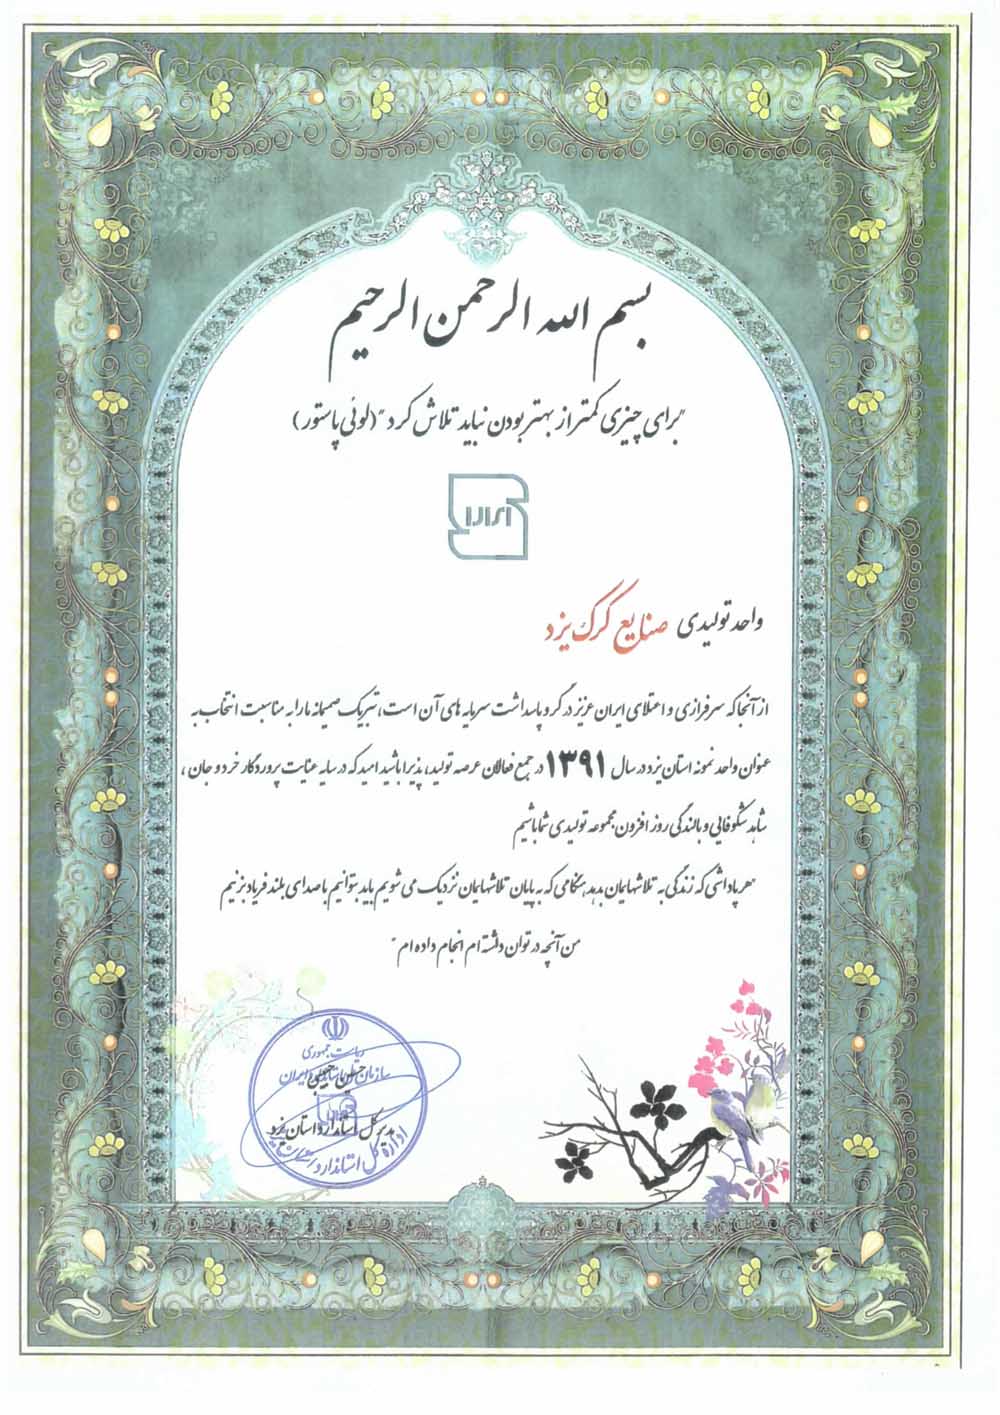 بسم الله الرحمن الرحیم
"برای چیزی کمتر از بهتر بودن نباید تلاش کرد" (لوئی پاستور)
واحد تولیدی صنایع کرک یزد
از آنجا که سرفرازی و اعتلای ایران عزیز در گرو پاسداشت سرمایه های آن است، تبریک صمیمانه ما را به مناسبت انتخاب به
عنوان واحد نمونه استان یزد در سال ۱۳۹۱ در جمع فعالان عرصه تولید، پذیرا باشید امید که در سایه عنایت پروردگار خرد و جان ،
شاهد شکوفایی و بالندگی روز افزون مجموعه تولیدی شما باشیم
"هر پاداشی که زندگی به تلاشهایمان بدهد هنگامی که به پایان تلاشهایمان نزدیک می شویم باید بتوانیم با صدای بلند فریاد بزنیم
من آنچه در توان داشته ام انجام داده ام"
ریاست جمهوری
سازمان استاندارد ایران
مدیرکل استاندارد استان یزد
اداره کل استاندارد استان یزد